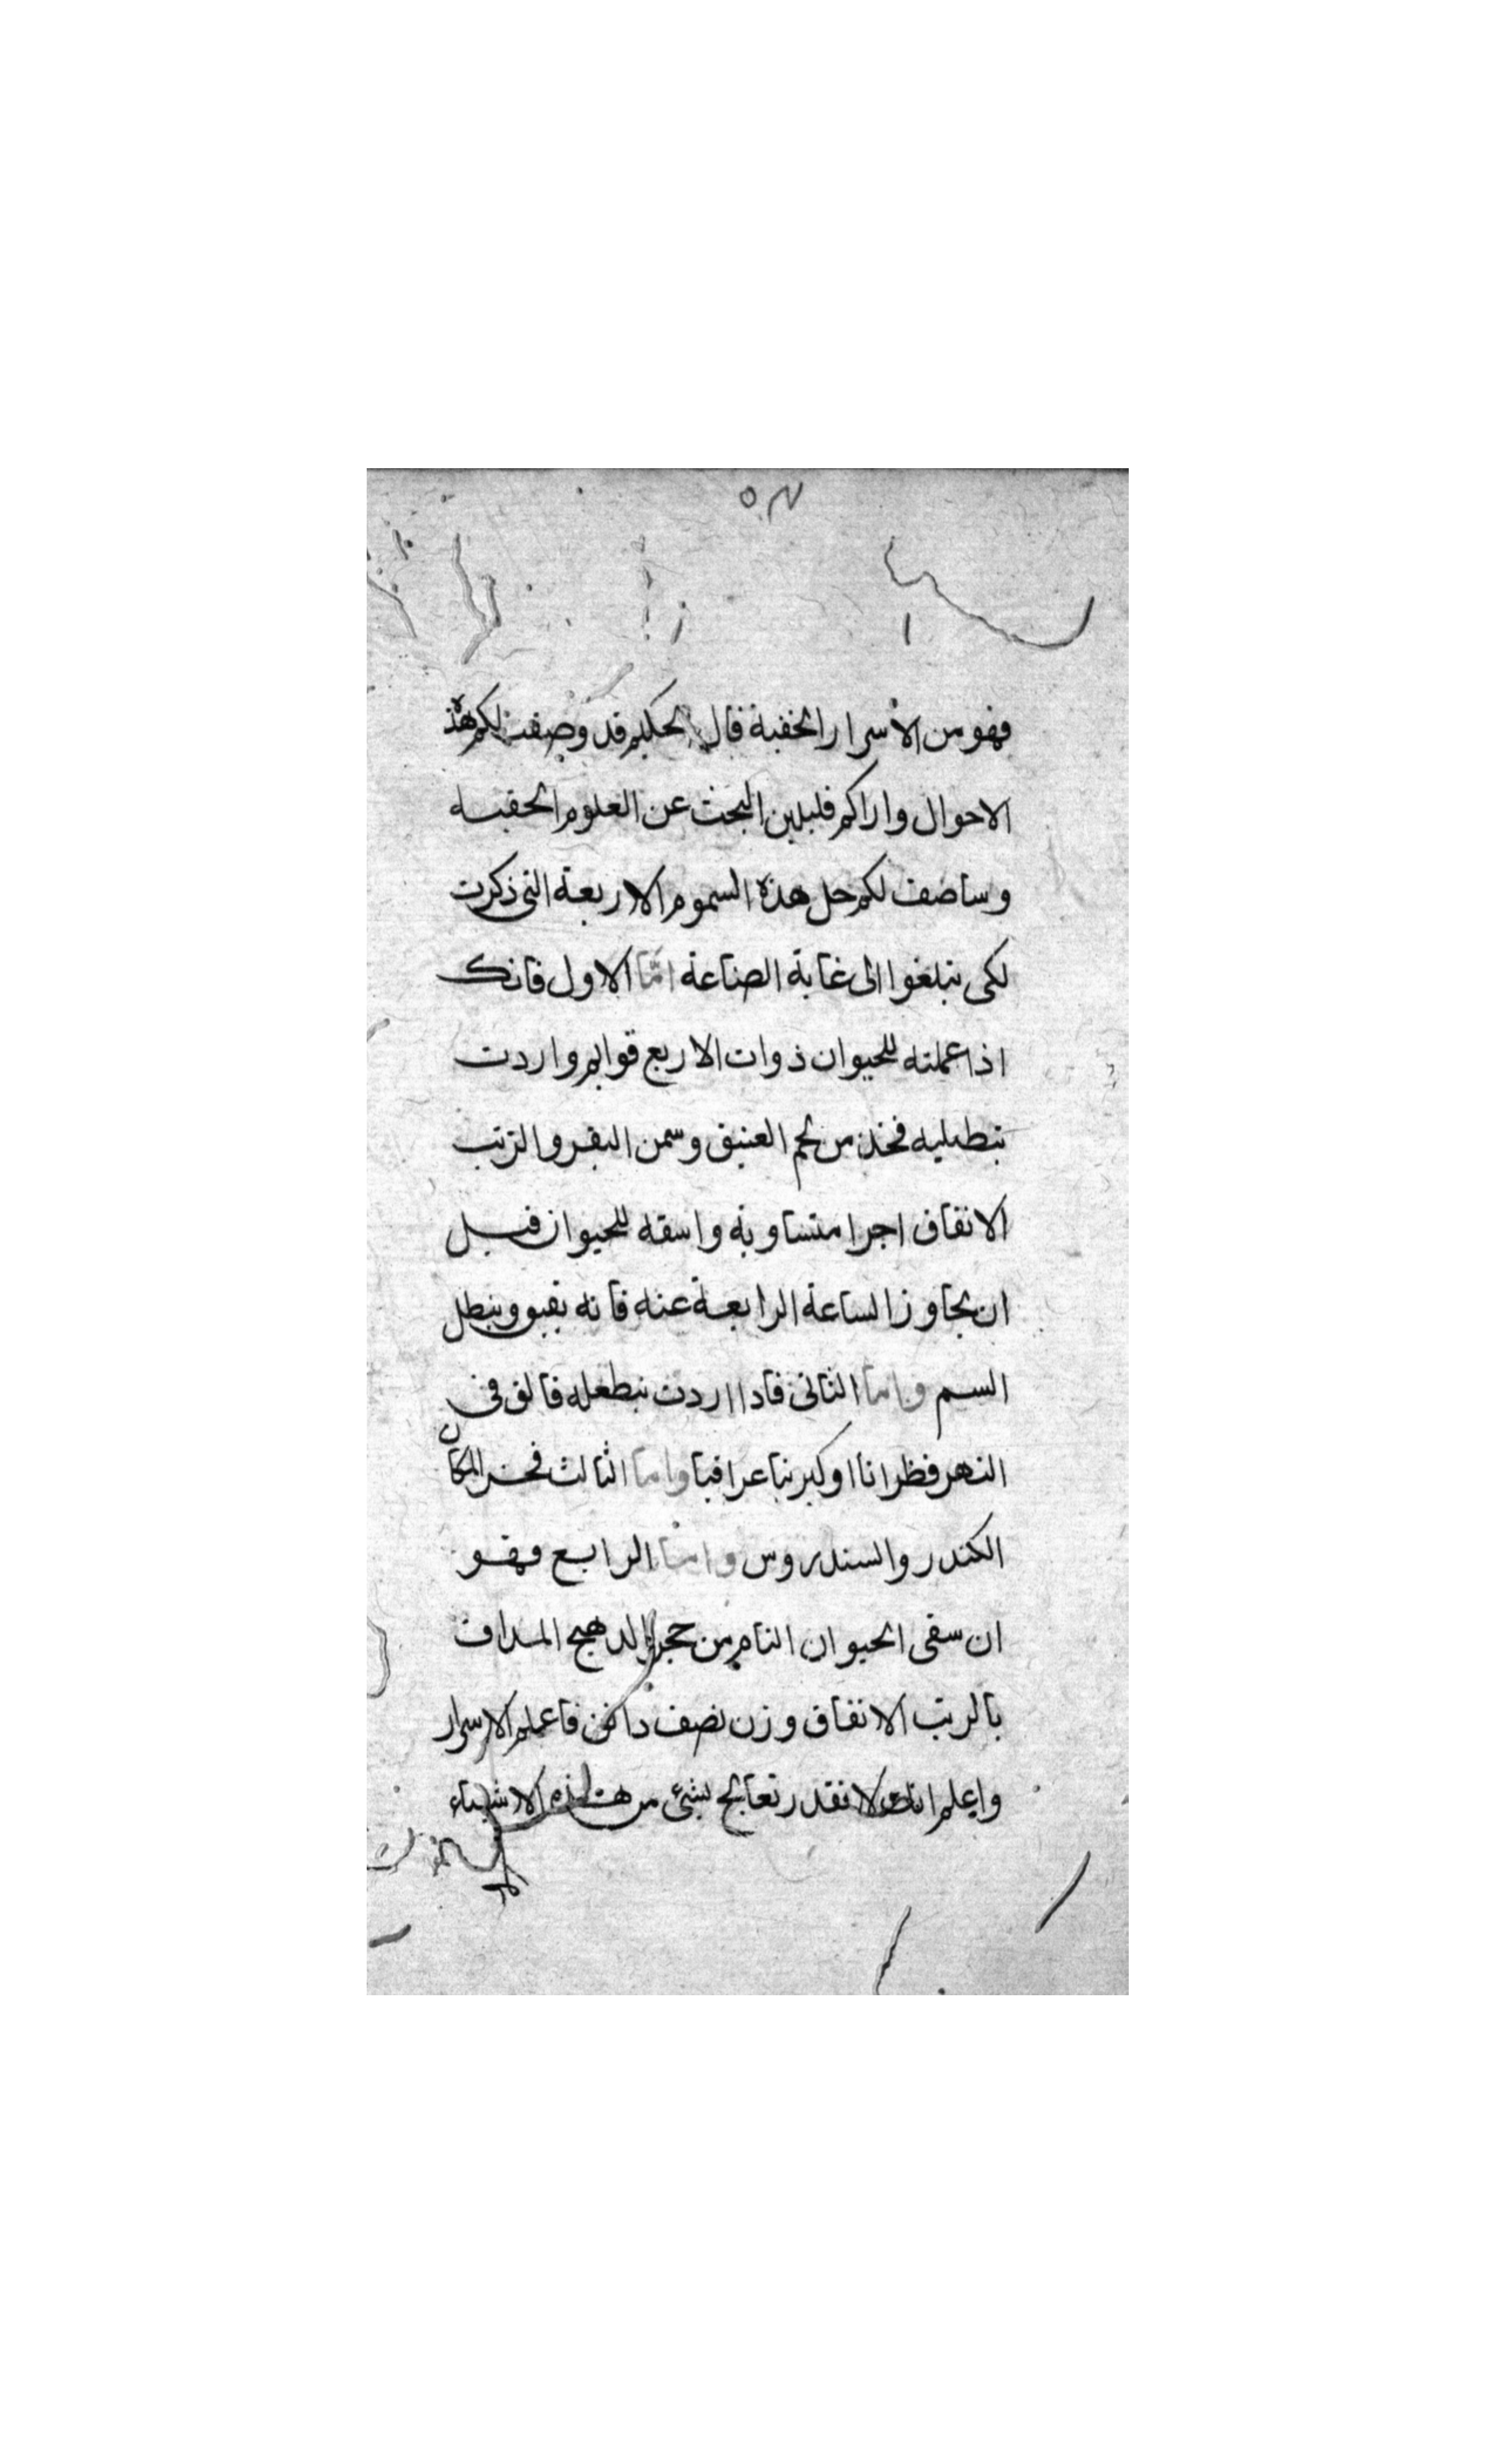 فهو من الاسرار الخفية قال الحكيم قد وصفت لكم هذه
الاحوال واراكم قليلين البحث عن العلوم الخفيه
وساصف لكم حل هذه السموم الاربعة التي ذكرت
لكي تبلغوا الى غاية الصناعة امّا الاول فانك
اذا عملته للحيوان ذوات الاربع قوايم واردت
تبطيله فخذ من لحم العتيق وسمن البقر والزيت
الانفاق اجرا متساويه واسقه للحيوان قبل
ان يجاوز الساعة الرابعة عنه فانه يقيو ويبطل
السم واما الثاني فادا اردت تبطله فالق في
النهر قطرانا او كبريتا عراقيا واما الثالث فخر المكان
الكندر والسندروس واما الرابع فهو
ان سقى الحيوان التام من حجر الدهنج المداف
بالريت الانفاق وزن نصف دانق فاعلم الاسرار
وايعلم انك لا تقدر تعالج بشئ من هذه الاشياء